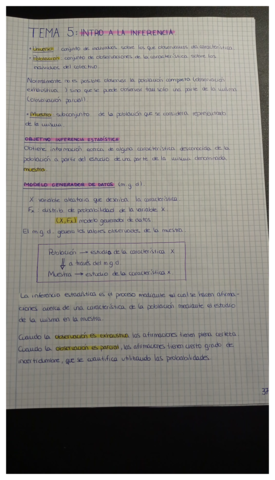 TEMA 5: INTRO A LA INFERENCIA
• Universo: conjunto de individuos sobre los que observamos las características.
• Población: conjunto de observaciones de la característica sobre los
individuos del colectivo.
Normalmente no es posible observar la población completa (observación
exhaustiva) sino que se puede observar tan solo una parte de la misma
(observación parcial).
• Muestra: subconjunto de la población que se considera representativo
de la misma.
OBJETIVO INFERENCIA ESTADÍSTICA
Obtener información acerca de alguna característica desconocida de la
población a partir del estudio de una parte de la misma denominada
muestra.
MODELO GENERADOR DE DATOS (m.g.d)
X variable aleatoria que describe la característica.
Fx distrib. de probabilidad de la variable X.
(X, Fx) modelo generador de datos.
El m.g.d. genera los valores observados de la muestra.
Población → estudio de la característica X
↓ a través del m.g.d.
Muestra → estudio de la característica X
La inferencia estadística es el proceso mediante el cual se hacen afirma-
ciones acerca de una característica de la población mediante el estudio
de la misma en la muestra.
Cuando la observación es exhaustiva, las afirmaciones tienen plena certeza
Cuando la observación es parcial, las afirmaciones tienen cierto grado de
incertidumbre, que se cuantifica utilizando las probabilidades.